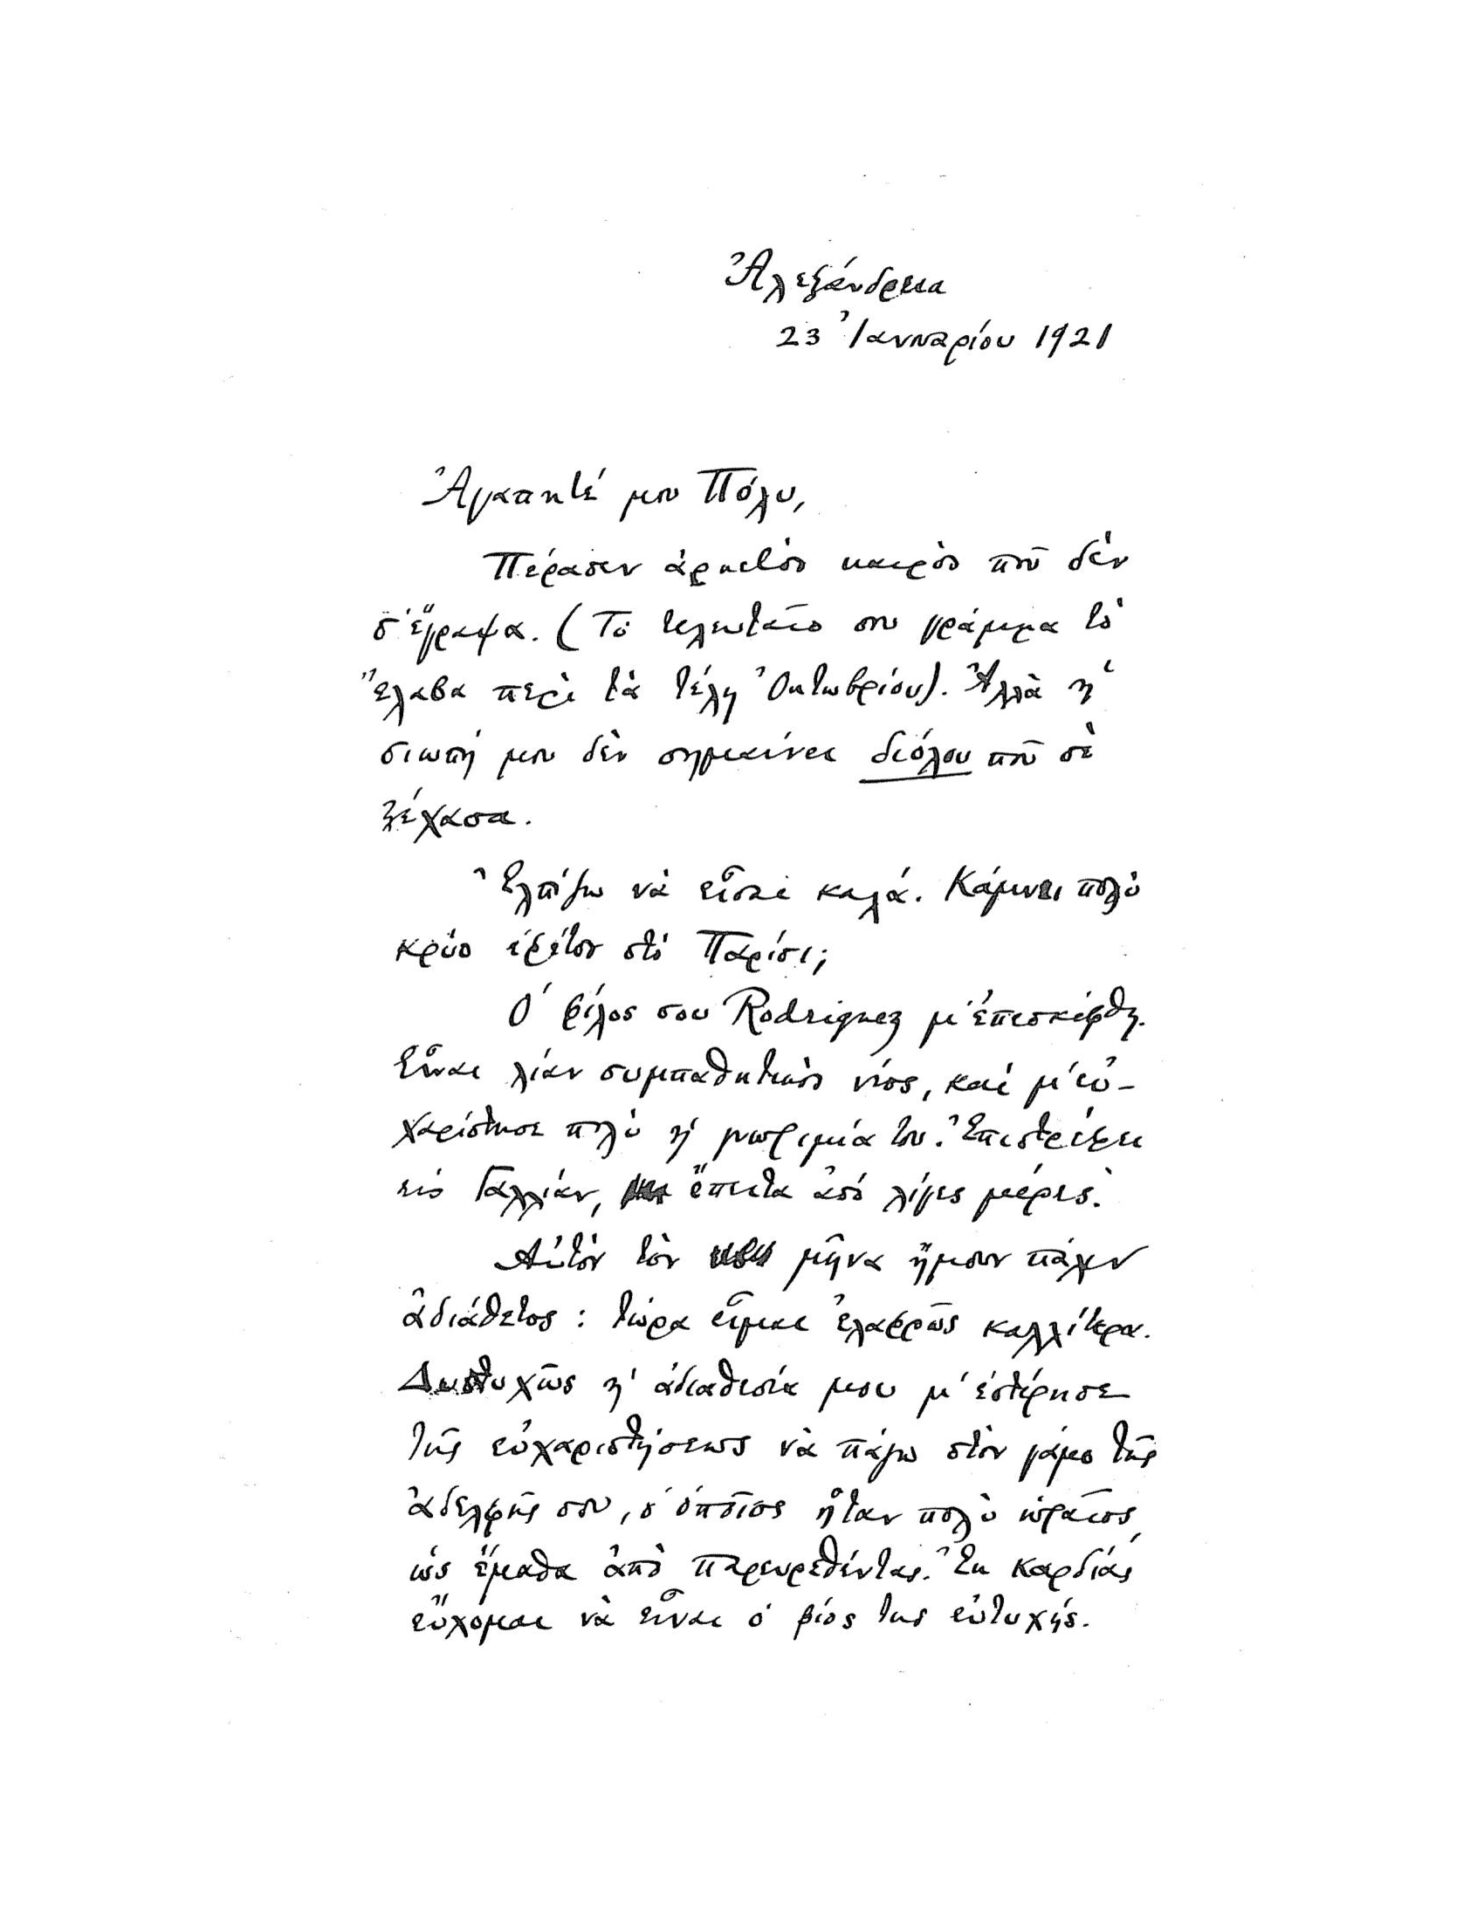 Ἀλεξάνδρεια
23 Ἰαννουαρίου 1921
Ἀγαπητέ μου Πόλυ,
Πέρασεν ἀρκετὸς καιρὸς ποῦ δὲν
σ' ἔγραψα. (Τὸ τελευταῖο σου γράμμα τὸ
ἔλαβα περὶ τὰ τέλη Ὀκτωβρίου). Ἀλλὰ ἡ
σιωπή μου δὲν σημαίνει διόλου ποῦ σὲ
ξέχασα.
Ἐλπίζω νὰ εἶσαι καλά. Κάμνει πολὺ
κρύο ἐφέτος στὸ Παρίσι;
Ὁ φίλος σου Rodriguez μ' ἐπισκέφθη.
Εἶναι λίαν συμπαθητικὸς νέος, καὶ μ' εὐ-
χαρίστησε πολὺ ἡ γνωριμία του. Ἐπιστρέφει
εἰς Γαλλίαν, ἔπειτα ἀπὸ λίγες μέρες.
Αὐτὸν τὸν μῆνα ἤμουν πάλιν
ἀδιάθετος: τώρα εἶμαι ἐλαφρῶς καλλίτερα.
Δυστυχῶς ἡ ἀδιαθεσία μου μ' ἐστέρησε
τῆς εὐχαριστήσεως νὰ πάγω στὸν γάμο τῆς
ἀδελφῆς σου, ὁ ὁποῖος ἦταν πολὺ ὡραῖος,
ὡς ἔμαθα ἀπὸ παρευρεθέντας. Ἐκ καρδίας
εὔχομαι νὰ εἶναι ὁ βίος της εὐτυχής.